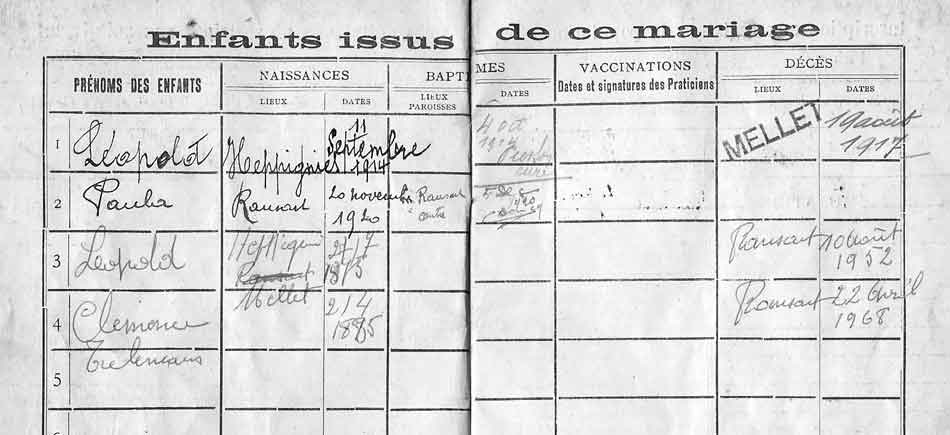 Enfants issus de ce mariage
PRÉNOMS DES ENFANTS
NAISSANCES
LIEUX
DATES
BAPTI
LIEUX
PAROISSES
MES
DATES
VACCINATIONS
Dates et signatures des Praticiens
DÉCÈS
LIEUX
DATES
1
Léopold
Heppignies
11
Septembre
1914
4 oct
curé
MELLET
19 août
1917
2
Paula
Ransart
20 novembre
1920
Ransart
centre
5
1920
3
Léopold
Heppignies
Ransart
Ransart
10 août
1952
4
Clémence
Mellet
2/4
1885
Ransart
22 Avril
1968
5